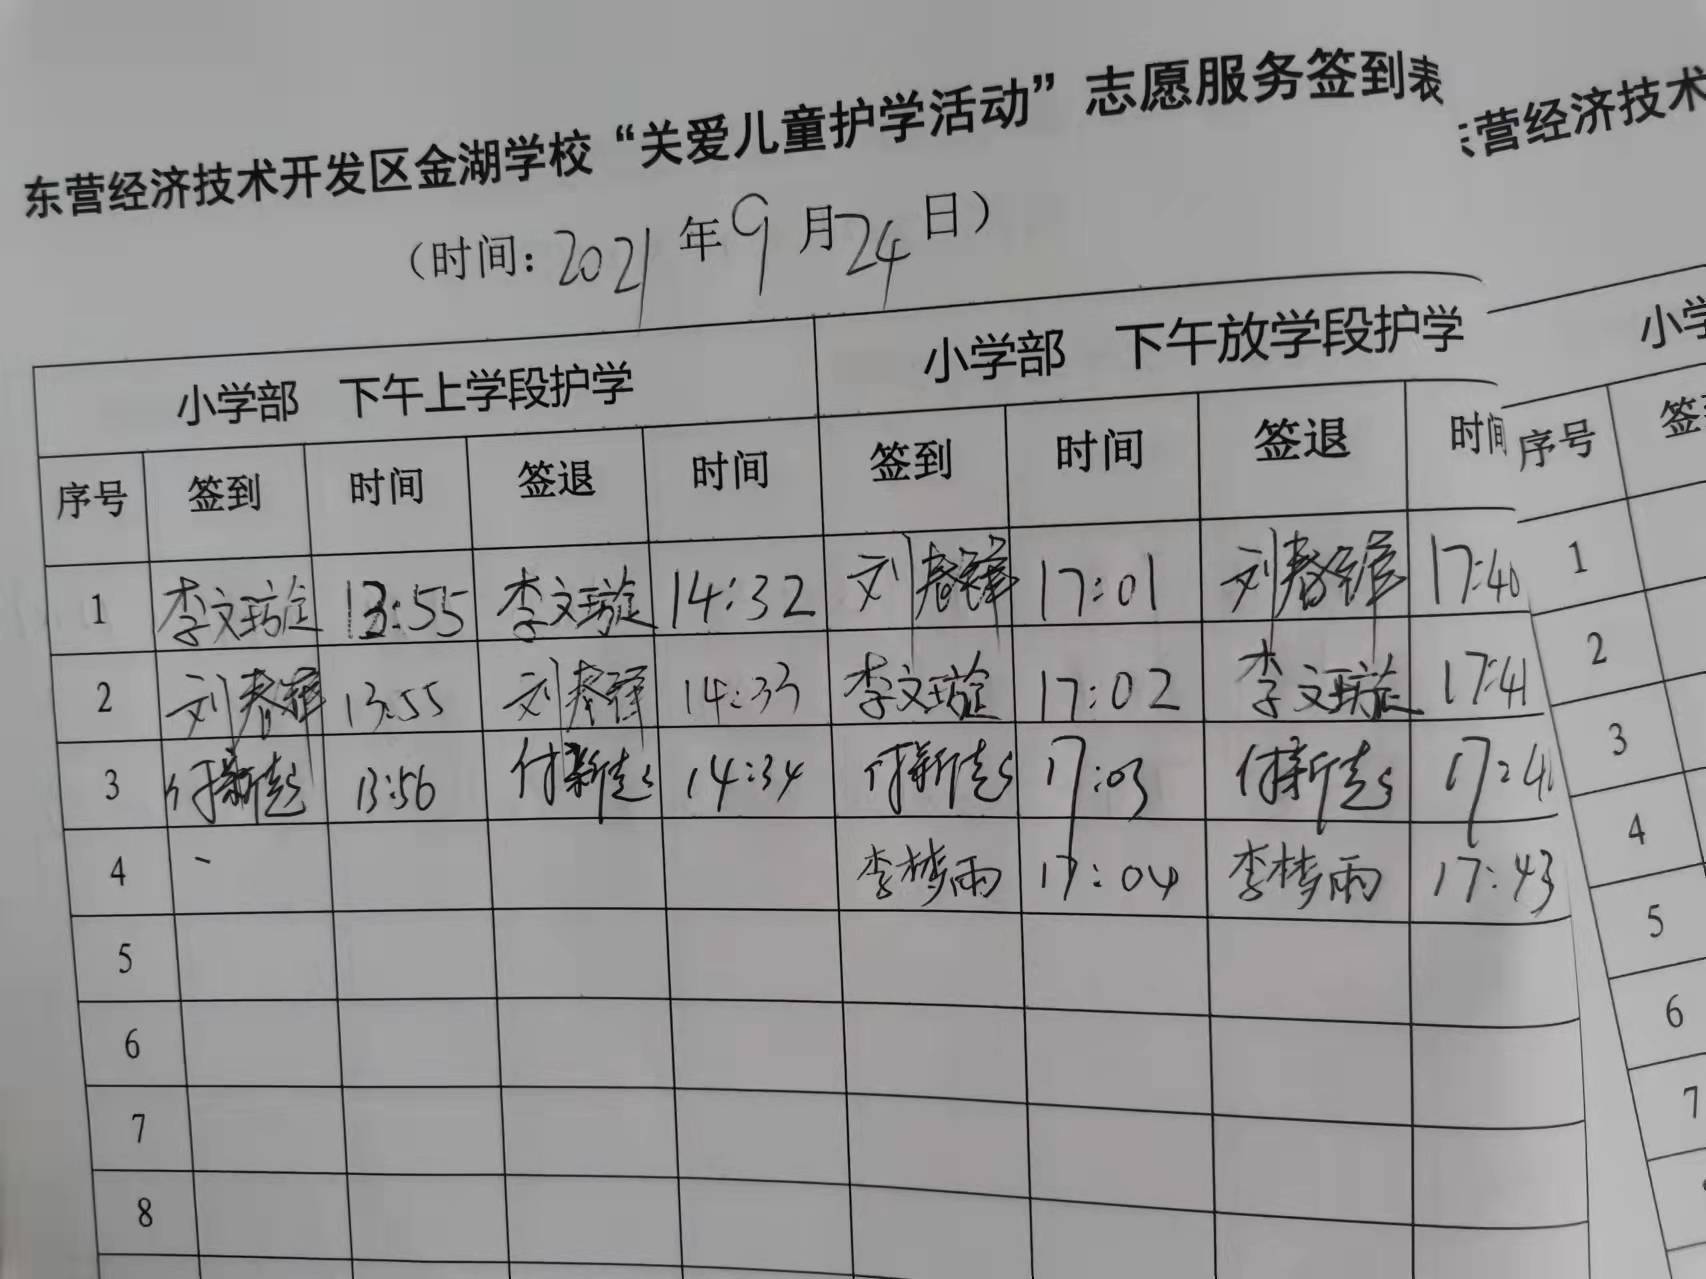 东营经济技术开发区金湖学校“关爱儿童护学活动”志愿服务签到表
（时间：2021年9月24日）
小学部 下午上学段护学 小学部 下午放学段护学
序号 签到 时间 签退 时间 签到 时间 签退 时间
1 李文璇 13:55 李文璇 14:32 刘春锋 17:01 刘春锋 17:40
2 刘春锋 13:55 刘春锋 14:33 李文璇 17:02 李文璇 17:41
3 付新起 13:56 付新起 14:34 付新起 17:03 付新起 17:4
4 李梦雨 17:04 李梦雨 17:43
5
6
7
8
营经济技术
小学
序号 签
1
2
3
4
5
6
7